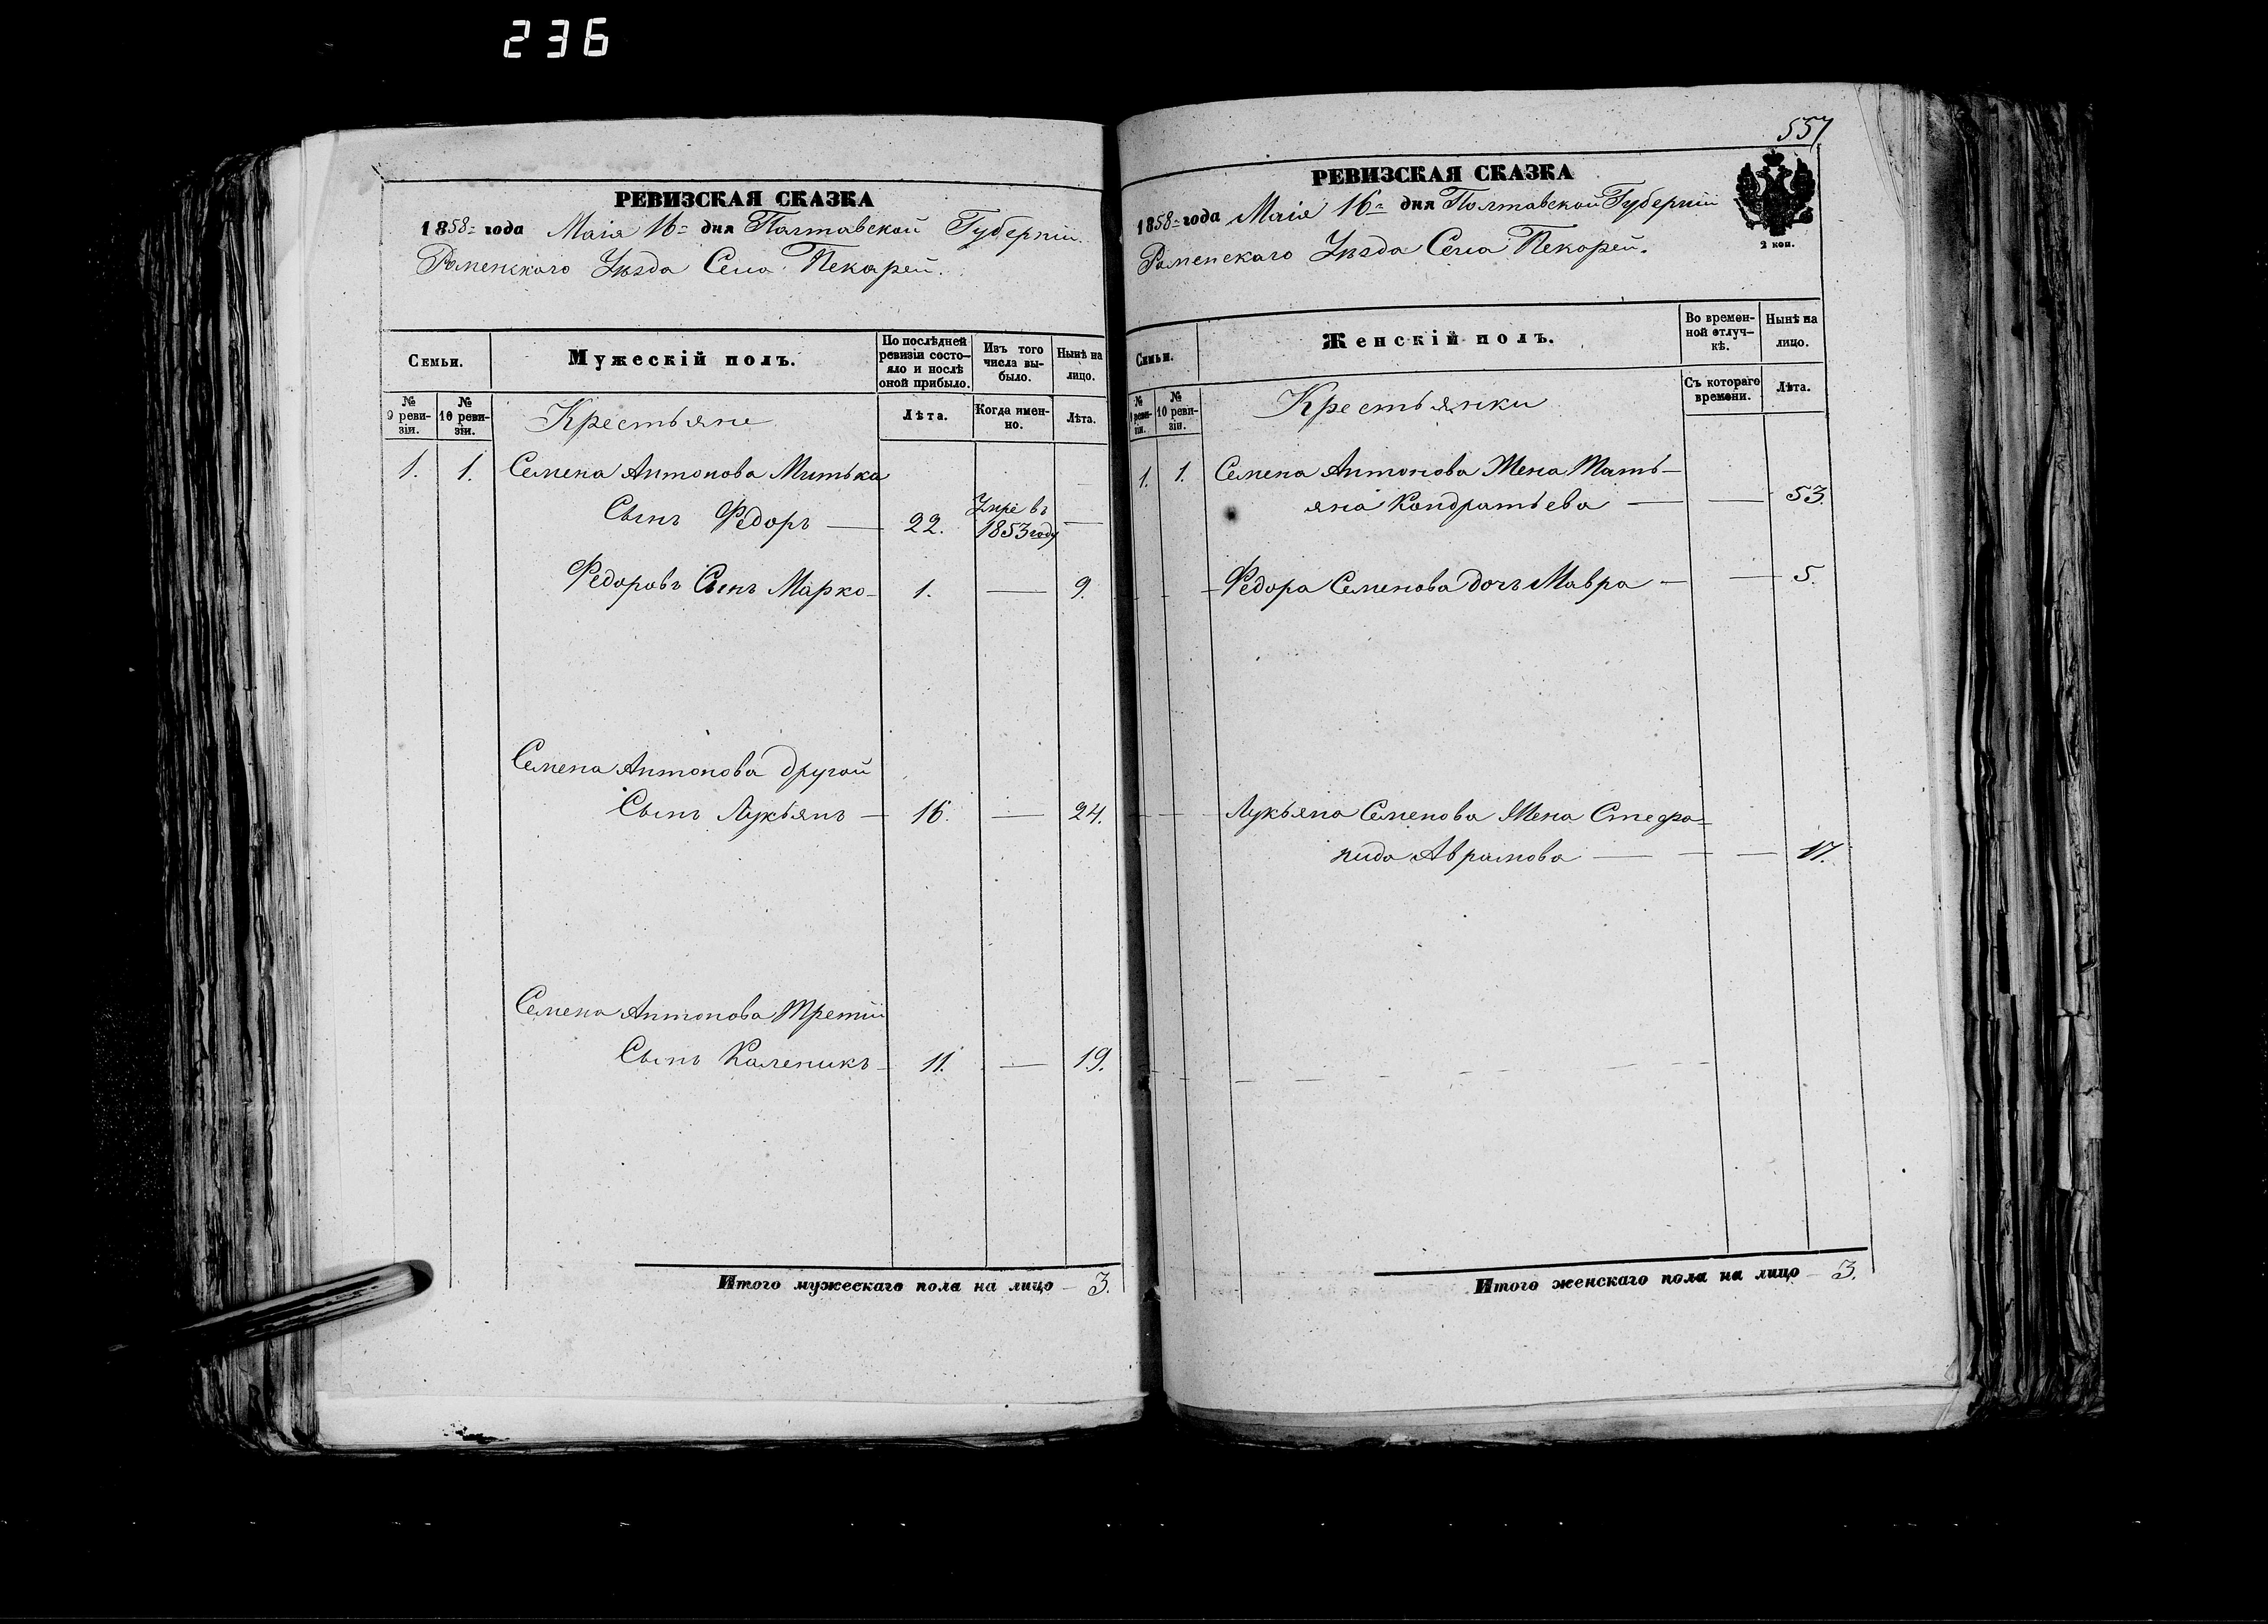 236
РЕВИЗСКАЯ СКАЗКА
1858 года Маія 16 дня Полтавской Губерніи
Роменскаго Уѣзда Села Пекарей.
Семьи.
Мужескій полъ.
По послѣдней ревизіи состо-
яло и послѣ оной прибыло.
Изъ того числа вы-
было.
Нынѣ на лицо.
№ 9 реви-
зіи.
№ 10 реви-
зіи.
Крестьяне
Лѣта.
Когда имен-
но.
Лѣта.
1. 1. Семена Антонова Митька
Сынъ Федоръ — 22. Умре въ 1853 году —
Федоровъ Сынъ Марко 1. — 9.
Семена Антонова другой
Сынъ Лукьянъ — 16. — 24.
Семена Антонова Третій
Сынъ Каленикъ 11. — 19.
Итого мужескаго пола на лицо — 3.
557
РЕВИЗСКАЯ СКАЗКА
2 коп.
1858 года Маія 16 дня Полтавской Губерніи
Роменскаго Уѣзда Села Пекарей.
Семьи.
Женскій полъ.
Во времен-
ной отлуч-
кѣ.
Нынѣ на лицо.
№ 9 реви-
зіи.
№ 10 реви-
зіи.
Крестьянки
Съ котораго времени.
Лѣта.
1. 1. Семена Антонова Жена Тать-
яна Кондратьева — — 53.
Федора Семенова дочь Мавра — — 5.
Лукьяна Семенова Жена Степа-
нида Аврамова — — 17.
Итого женскаго пола на лицо — 3.